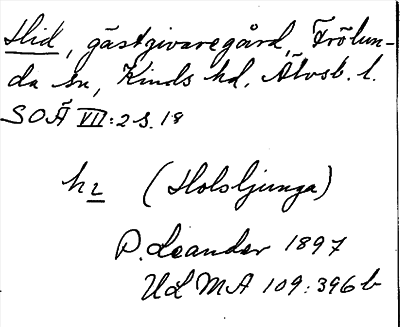 Hid, gästgivaregård, Frölun-
da sn, Kinds hd, Älvsb. l.
SOÄ VII:2 s. 18
h2 (Holsljunga)
P. Leander 1897
ULMA 109:396b